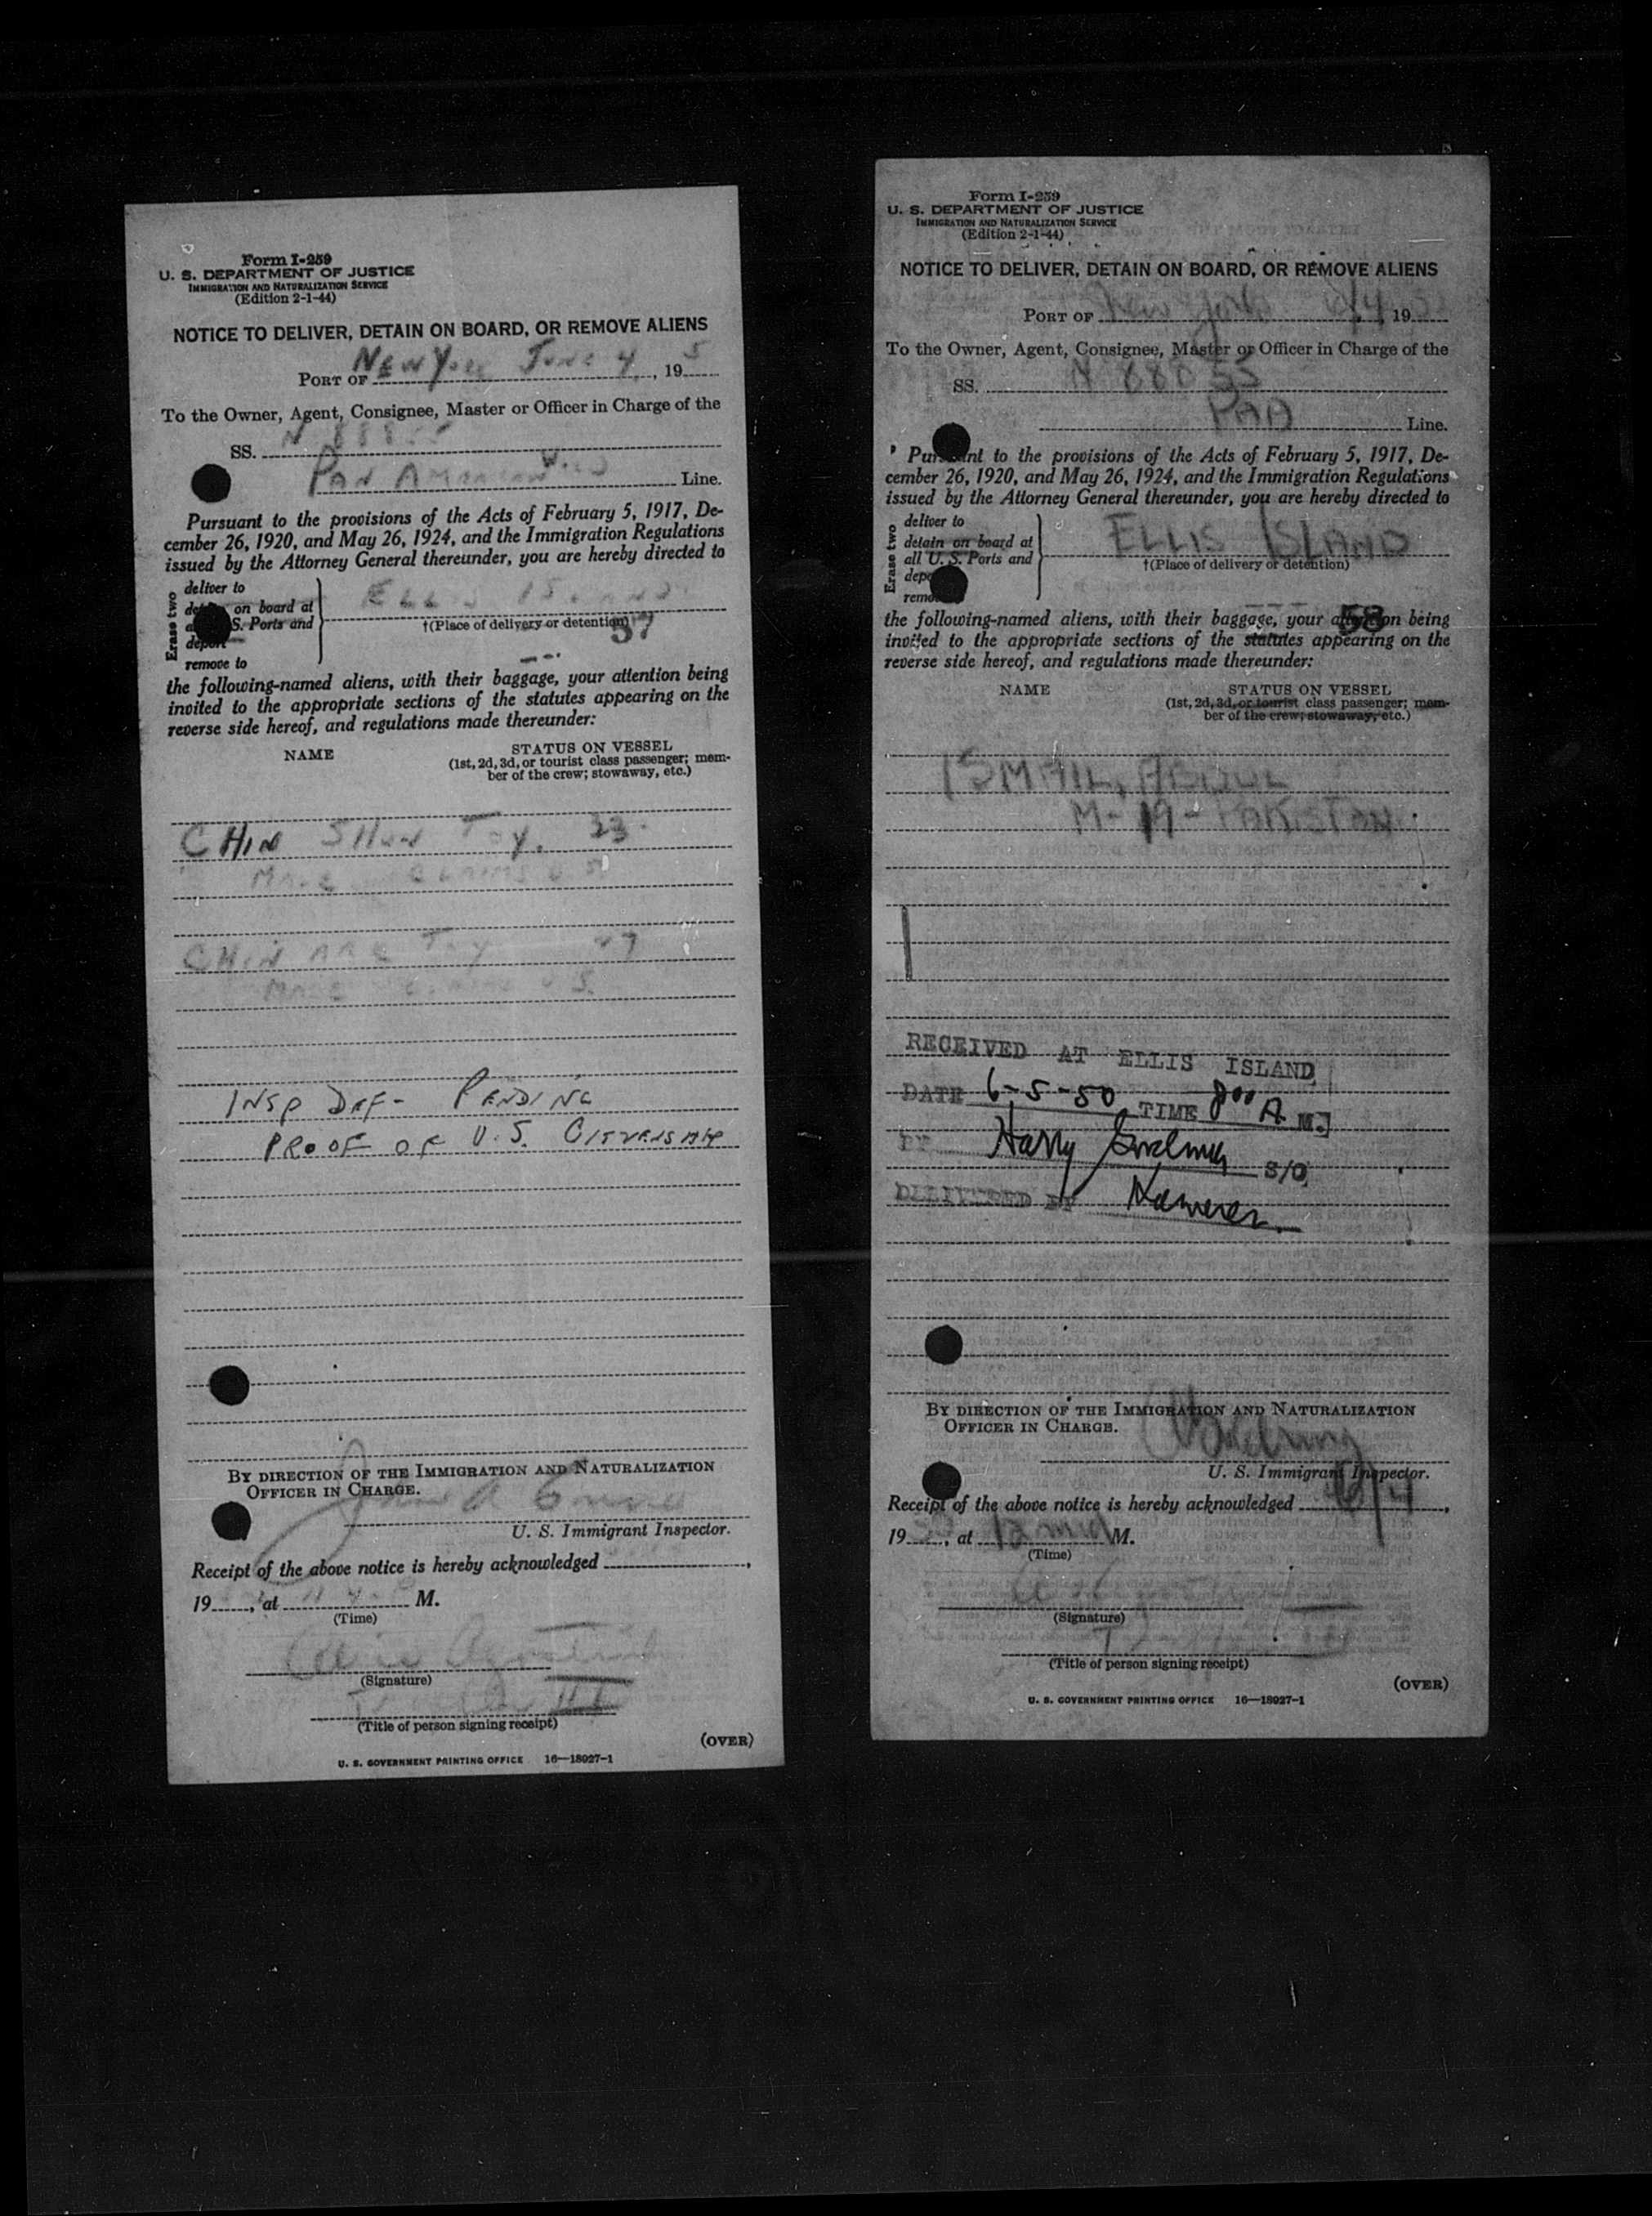 Form I-259
U. S. DEPARTMENT OF JUSTICE
IMMIGRATION AND NATURALIZATION SERVICE
(Edition 2-1-44)
NOTICE TO DELIVER, DETAIN ON BOARD, OR REMOVE ALIENS
PORT OF New York June 4, 195
To the Owner, Agent, Consignee, Master or Officer in Charge of the
SS. N 888
PAN AMERICAN Line.
Pursuant to the provisions of the Acts of February 5, 1917, De-
cember 26, 1920, and May 26, 1924, and the Immigration Regulations
issued by the Attorney General thereunder, you are hereby directed to
Erase two
deliver to
on board at
S. Ports and
deport
remove to
ELLIS ISLAND
†(Place of delivery or detention)
57
the following-named aliens, with their baggage, your attention being
invited to the appropriate sections of the statutes appearing on the
reverse side hereof, and regulations made thereunder:
NAME
STATUS ON VESSEL
(1st, 2d, 3d, or tourist class passenger; mem-
ber of the crew; stowaway, etc.)
CHIN SHUN TOY. 23
MALE CLAIMS US
CHIN TOY 27
MALE U.S.
INSP DEF- PENDING
PROOF OF U.S. CITIZENSHIP
BY DIRECTION OF THE IMMIGRATION AND NATURALIZATION
OFFICER IN CHARGE.
U. S. Immigrant Inspector.
Receipt of the above notice is hereby acknowledged
19, at M.
(Time)
(Signature)
(Title of person signing receipt)
(OVER)
U. S. GOVERNMENT PRINTING OFFICE 16—18027-1
Form I-259
U. S. DEPARTMENT OF JUSTICE
IMMIGRATION AND NATURALIZATION SERVICE
(Edition 2-1-44)
NOTICE TO DELIVER, DETAIN ON BOARD, OR REMOVE ALIENS
PORT OF New York 6/4 19
To the Owner, Agent, Consignee, Master or Officer in Charge of the
SS. N 88855
PAA Line.
Pursuant to the provisions of the Acts of February 5, 1917, De-
cember 26, 1920, and May 26, 1924, and the Immigration Regulations
issued by the Attorney General thereunder, you are hereby directed to
Erase two
deliver to
detain on board at
all U. S. Ports and
ELLIS ISLAND
†(Place of delivery or detention)
58
the following-named aliens, with their baggage, your attention being
invited to the appropriate sections of the statutes appearing on the
reverse side hereof, and regulations made thereunder:
NAME
STATUS ON VESSEL
(1st, 2d, 3d, or tourist class passenger; mem-
ber of the crew; stowaway, etc.)
ISMAIL, ABDUL
M-19-PAKISTAN
RECEIVED AT ELLIS ISLAND
DATE 6-5-50 TIME 800 A. M.
BY Harry S/O
DELIVERED BY
BY DIRECTION OF THE IMMIGRATION AND NATURALIZATION
OFFICER IN CHARGE.
U. S. Immigrant Inspector.
Receipt of the above notice is hereby acknowledged 6/4,
19, at 12 mid M.
(Time)
(Signature)
(Title of person signing receipt)
(OVER)
U. S. GOVERNMENT PRINTING OFFICE 16—18027-1